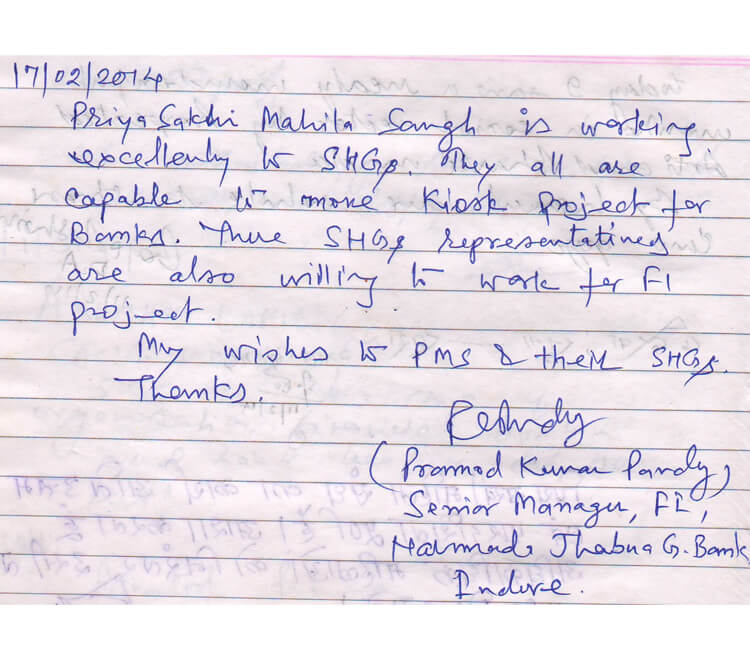 17/02/2014
Priya Sakhi Mahila Sangh is working
excellently to SHGs. They all are
capable to more Kiosk project for
Banks. These SHGs representatives
are also willing to work for FI
project.
My wishes to PMS & their SHGs.
Thanks.
(Pramod Kumar Pandy)
Senior Manager, FI,
Narmada Jhabua G. Bank
Indore.